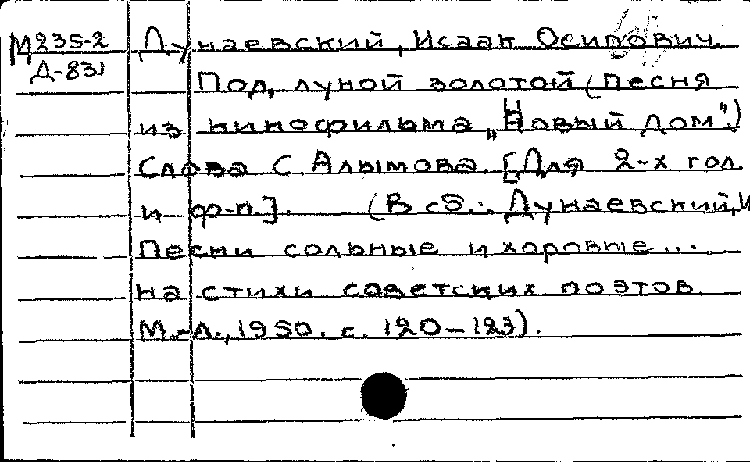 М235-2 Дунаевский, Исаак Осипович.
Д-831 Под луной золотой (Песня
из кинофильма „Новый дом".)
Слова С. Алымова. [Для 2-х гол.
и ф-п.]. (В сб.: Дунаевский, И
Песни сольные и хоровые...
на стихи советских поэтов.
М.-Л., 1950. с. 120-123).